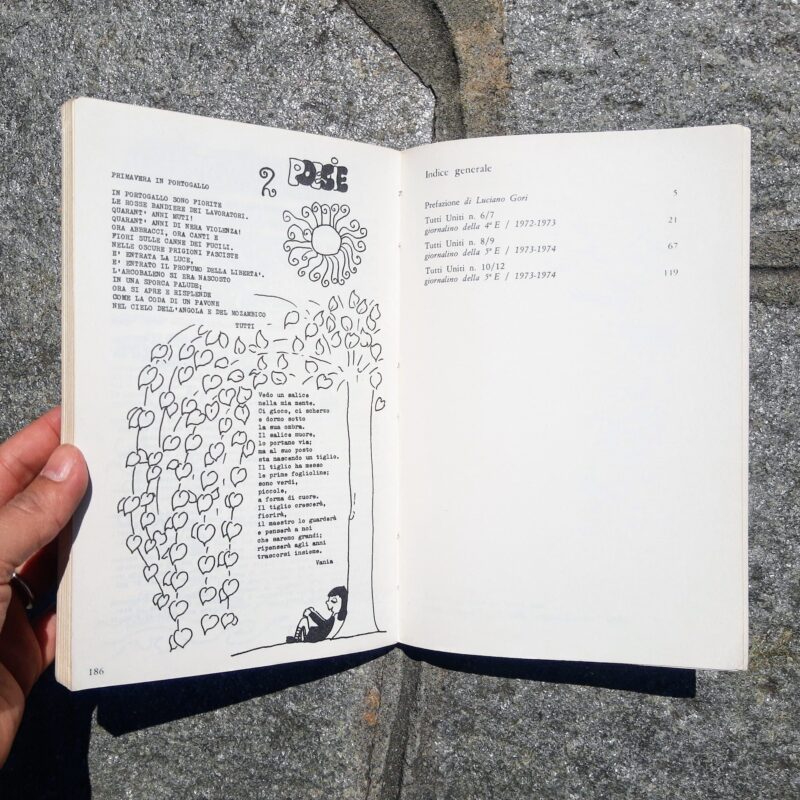 2 POESIE
PRIMAVERA IN PORTOGALLO
IN PORTOGALLO SONO FIORITE
LE ROSSE BANDIERE DEI LAVORATORI.
QUARANT' ANNI MUTI!
QUARANT' ANNI DI NERA VIOLENZA!
ORA ABBRACCI, ORA CANTI E
FIORI SULLE CANNE DEI FUCILI.
NELLE OSCURE PRIGIONI FASCISTE
E' ENTRATA LA LUCE,
E' ENTRATO IL PROFUMO DELLA LIBERTA'.
L'ARCOBALENO SI ERA NASCOSTO
IN UNA SPORCA PALUDE;
ORA SI APRE E RISPLENDE
COME LA CODA DI UN PAVONE
NEL CIELO DELL'ANGOLA E DEL MOZAMBICO
TUTTI
Vedo un salice
nella mia mente.
Ci gioco, ci scherzo
e dormo sotto
la sua ombra.
Il salice muore,
lo portano via;
ma al suo posto
sta nascendo un tiglio.
Il tiglio ha messo
le prime foglioline;
sono verdi,
piccole,
a forma di cuore.
Il tiglio crescerà,
fiorirà,
il maestro lo guarderà
e penserà a noi
che saremo grandi;
ripenserà agli anni
trascorsi insieme.
Vania
186
Indice generale
Prefazione di Luciano Gori 5
Tutti Uniti n. 6/7
giornalino della 4ª E / 1972-1973 21
Tutti Uniti n. 8/9
giornalino della 5ª E / 1973-1974 67
Tutti Uniti n. 10/12
giornalino della 5ª E / 1973-1974 119